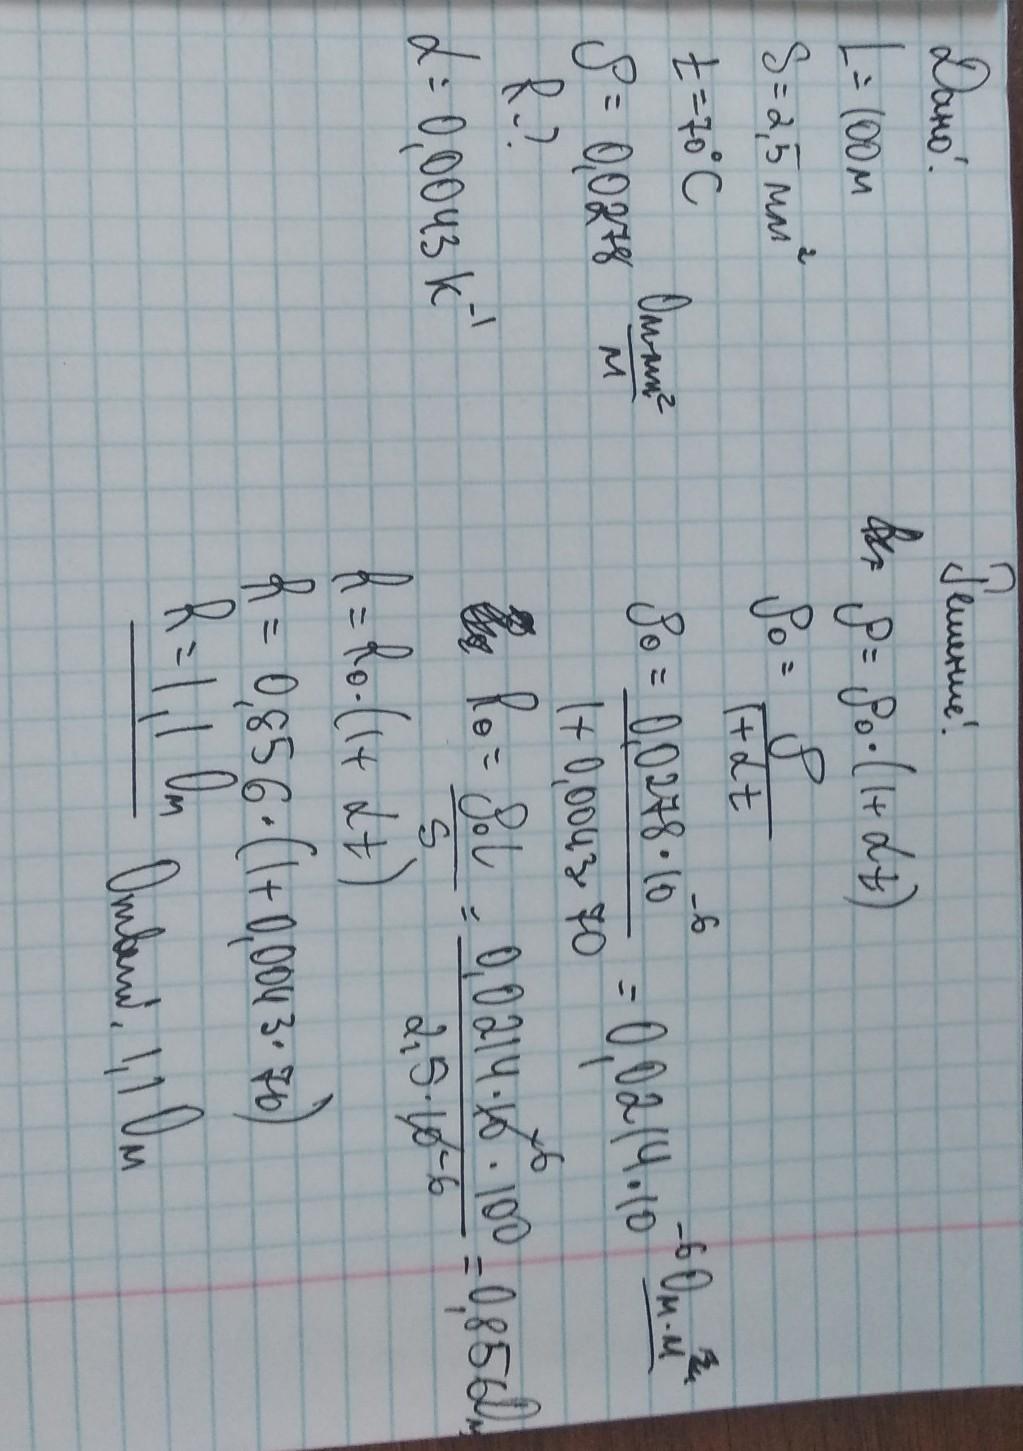 Дано:
L = 100 м
S = 2,5 мм²
t = 70°C
ρ = 0,0278 Ом·мм²/м
R - ?
α = 0,0043 K⁻¹
Решение:
ρ = ρ₀·(1 + αt)
ρ₀ = ρ/(1 + αt)
ρ₀ = (0,0278·10⁻⁶)/(1 + 0,0043·70) = 0,0214·10⁻⁶ Ом·м
R₀ = ρ₀L/S = (0,0214·10⁻⁶·100)/(2,5·10⁻⁶) = 0,856 Ом
R = R₀·(1 + αt)
R = 0,856·(1 + 0,0043·70)
R = 1,1 Ом
Ответ: 1,1 Ом